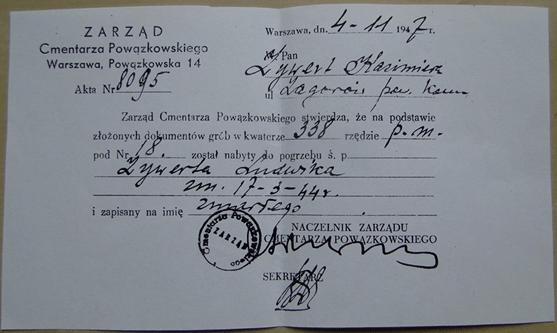 ZARZĄD
Cmentarza Powązkowskiego
Warszawa, Powązkowska 14
Akta Nr 8095
Warszawa, dn. 4-11 1947r.
Pan
Żywert Kazimierz
ul Zagórów pow.
Zarząd Cmentarza Powązkowskiego stwierdza, że na podstawie
złożonych dokumentów grób w kwaterze 338 rzędzie p.m.
pod Nr 18. został nabyty do pogrzebu ś. p.
Żywerta Ludwika
zm. 17-3-44r.
i zapisany na imię zmarłego
NACZELNIK ZARZĄDU
CMENTARZA POWĄZKOWSKIEGO
Cmentarza Powązkowskiego
ZARZĄD
SEKRETARZ